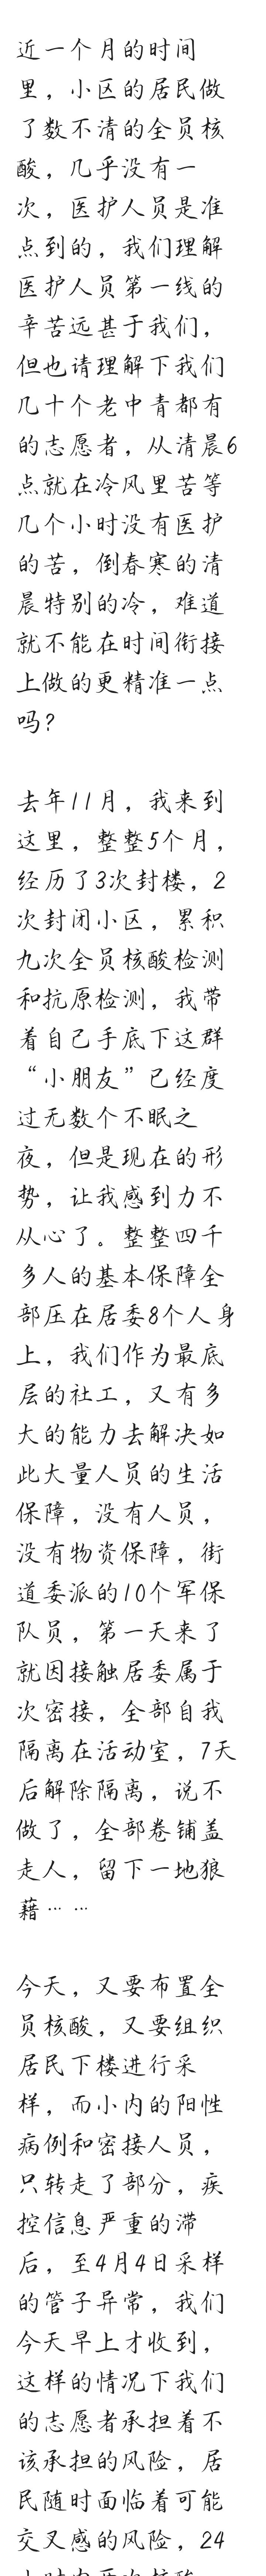 近一个月的时间
里，小区的居民做
了数不清的全员核
酸，几乎没有一
次，医护人员是准
点到的，我们理解
医护人员第一线的
辛苦远甚于我们，
但也请理解下我们
几十个老中青都有
的志愿者，从清晨6
点就在冷风里苦等
几个小时没有医护
的苦，倒春寒的清
晨特别的冷，难道
就不能在时间衔接
上做的更精准一点
吗?
去年11月，我来到
这里，整整5个月，
经历了3次封楼，2
次封闭小区，累积
九次全员核酸检测
和抗原检测，我带
着自己手底下这群
“小朋友”已经度
过无数个不眠之
夜，但是现在的形
势，让我感到力不
从心了。整整四千
多人的基本保障全
部压在居委8个人身
上，我们作为最底
层的社工，又有多
大的能力去解决如
此大量人员的生活
保障，没有人员，
没有物资保障，街
道委派的10个军保
队员，第一天来了
就因接触居委属于
次密接，全部自我
隔离在活动室，7天
后解除隔离，说不
做了，全部卷铺盖
走人，留下一地狼
藉……
今天，又要布置全
员核酸，又要组织
居民下楼进行采
样，而小内的阳性
病例和密接人员，
只转走了部分，疾
控信息严重的滞
后，至4月4日采样
的管子异常，我们
今天早上才收到，
这样的情况下我们
的志愿者承担着不
该承担的风险，居
民随时面临着可能
交叉感的风险，24